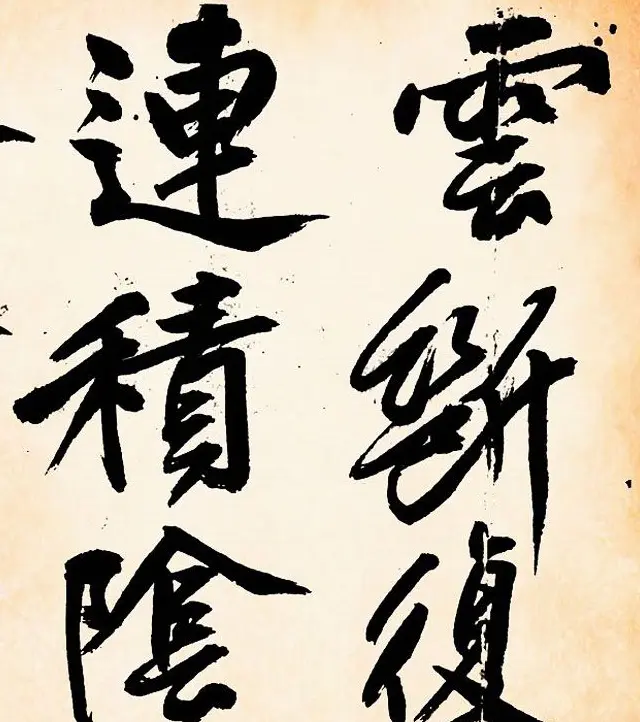 雲斷復
連積陰